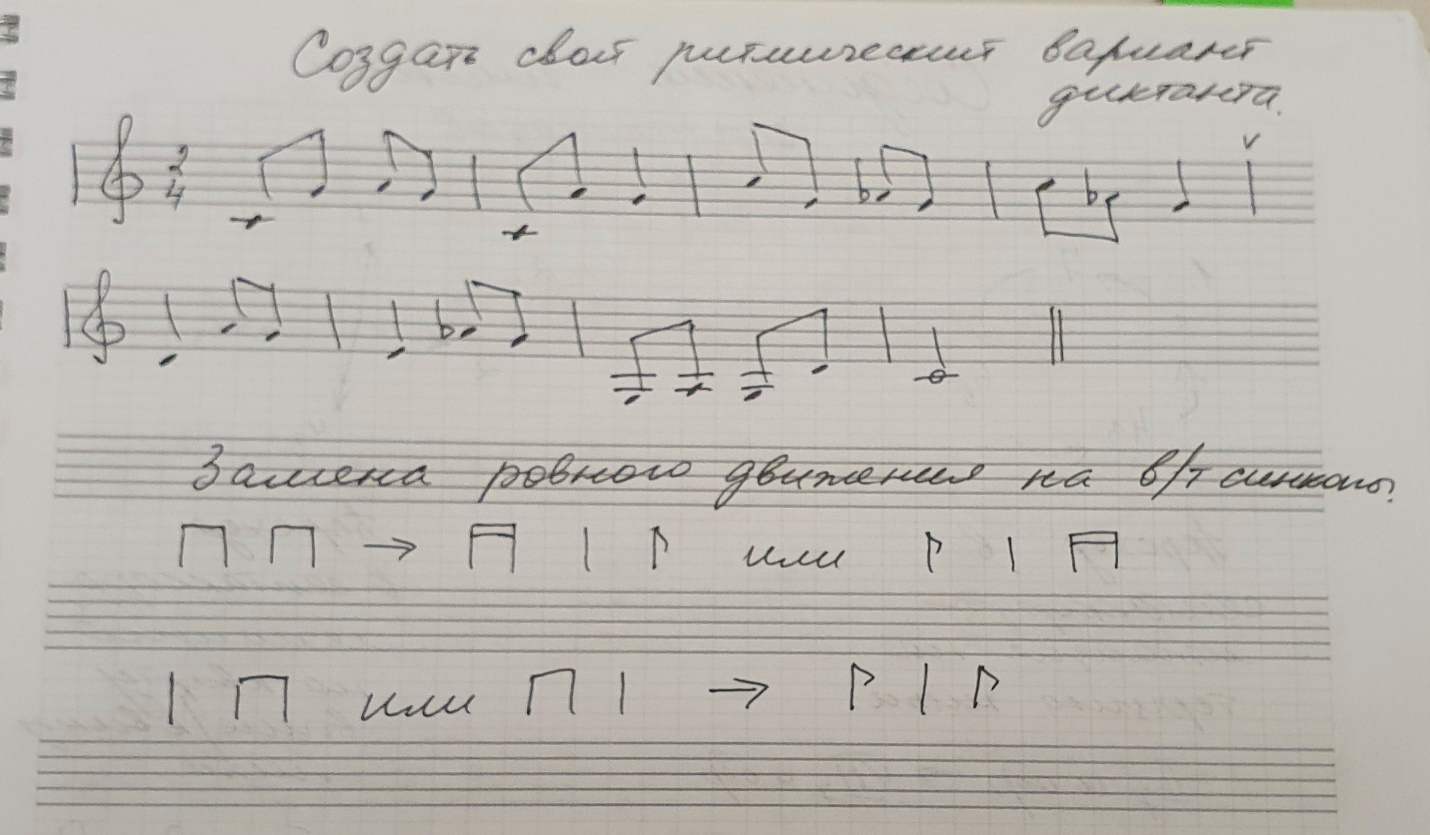 Создать свой ритмический вариант
диктанта.
2
4
Замена ровного движения на в/т синкопы.
или
или